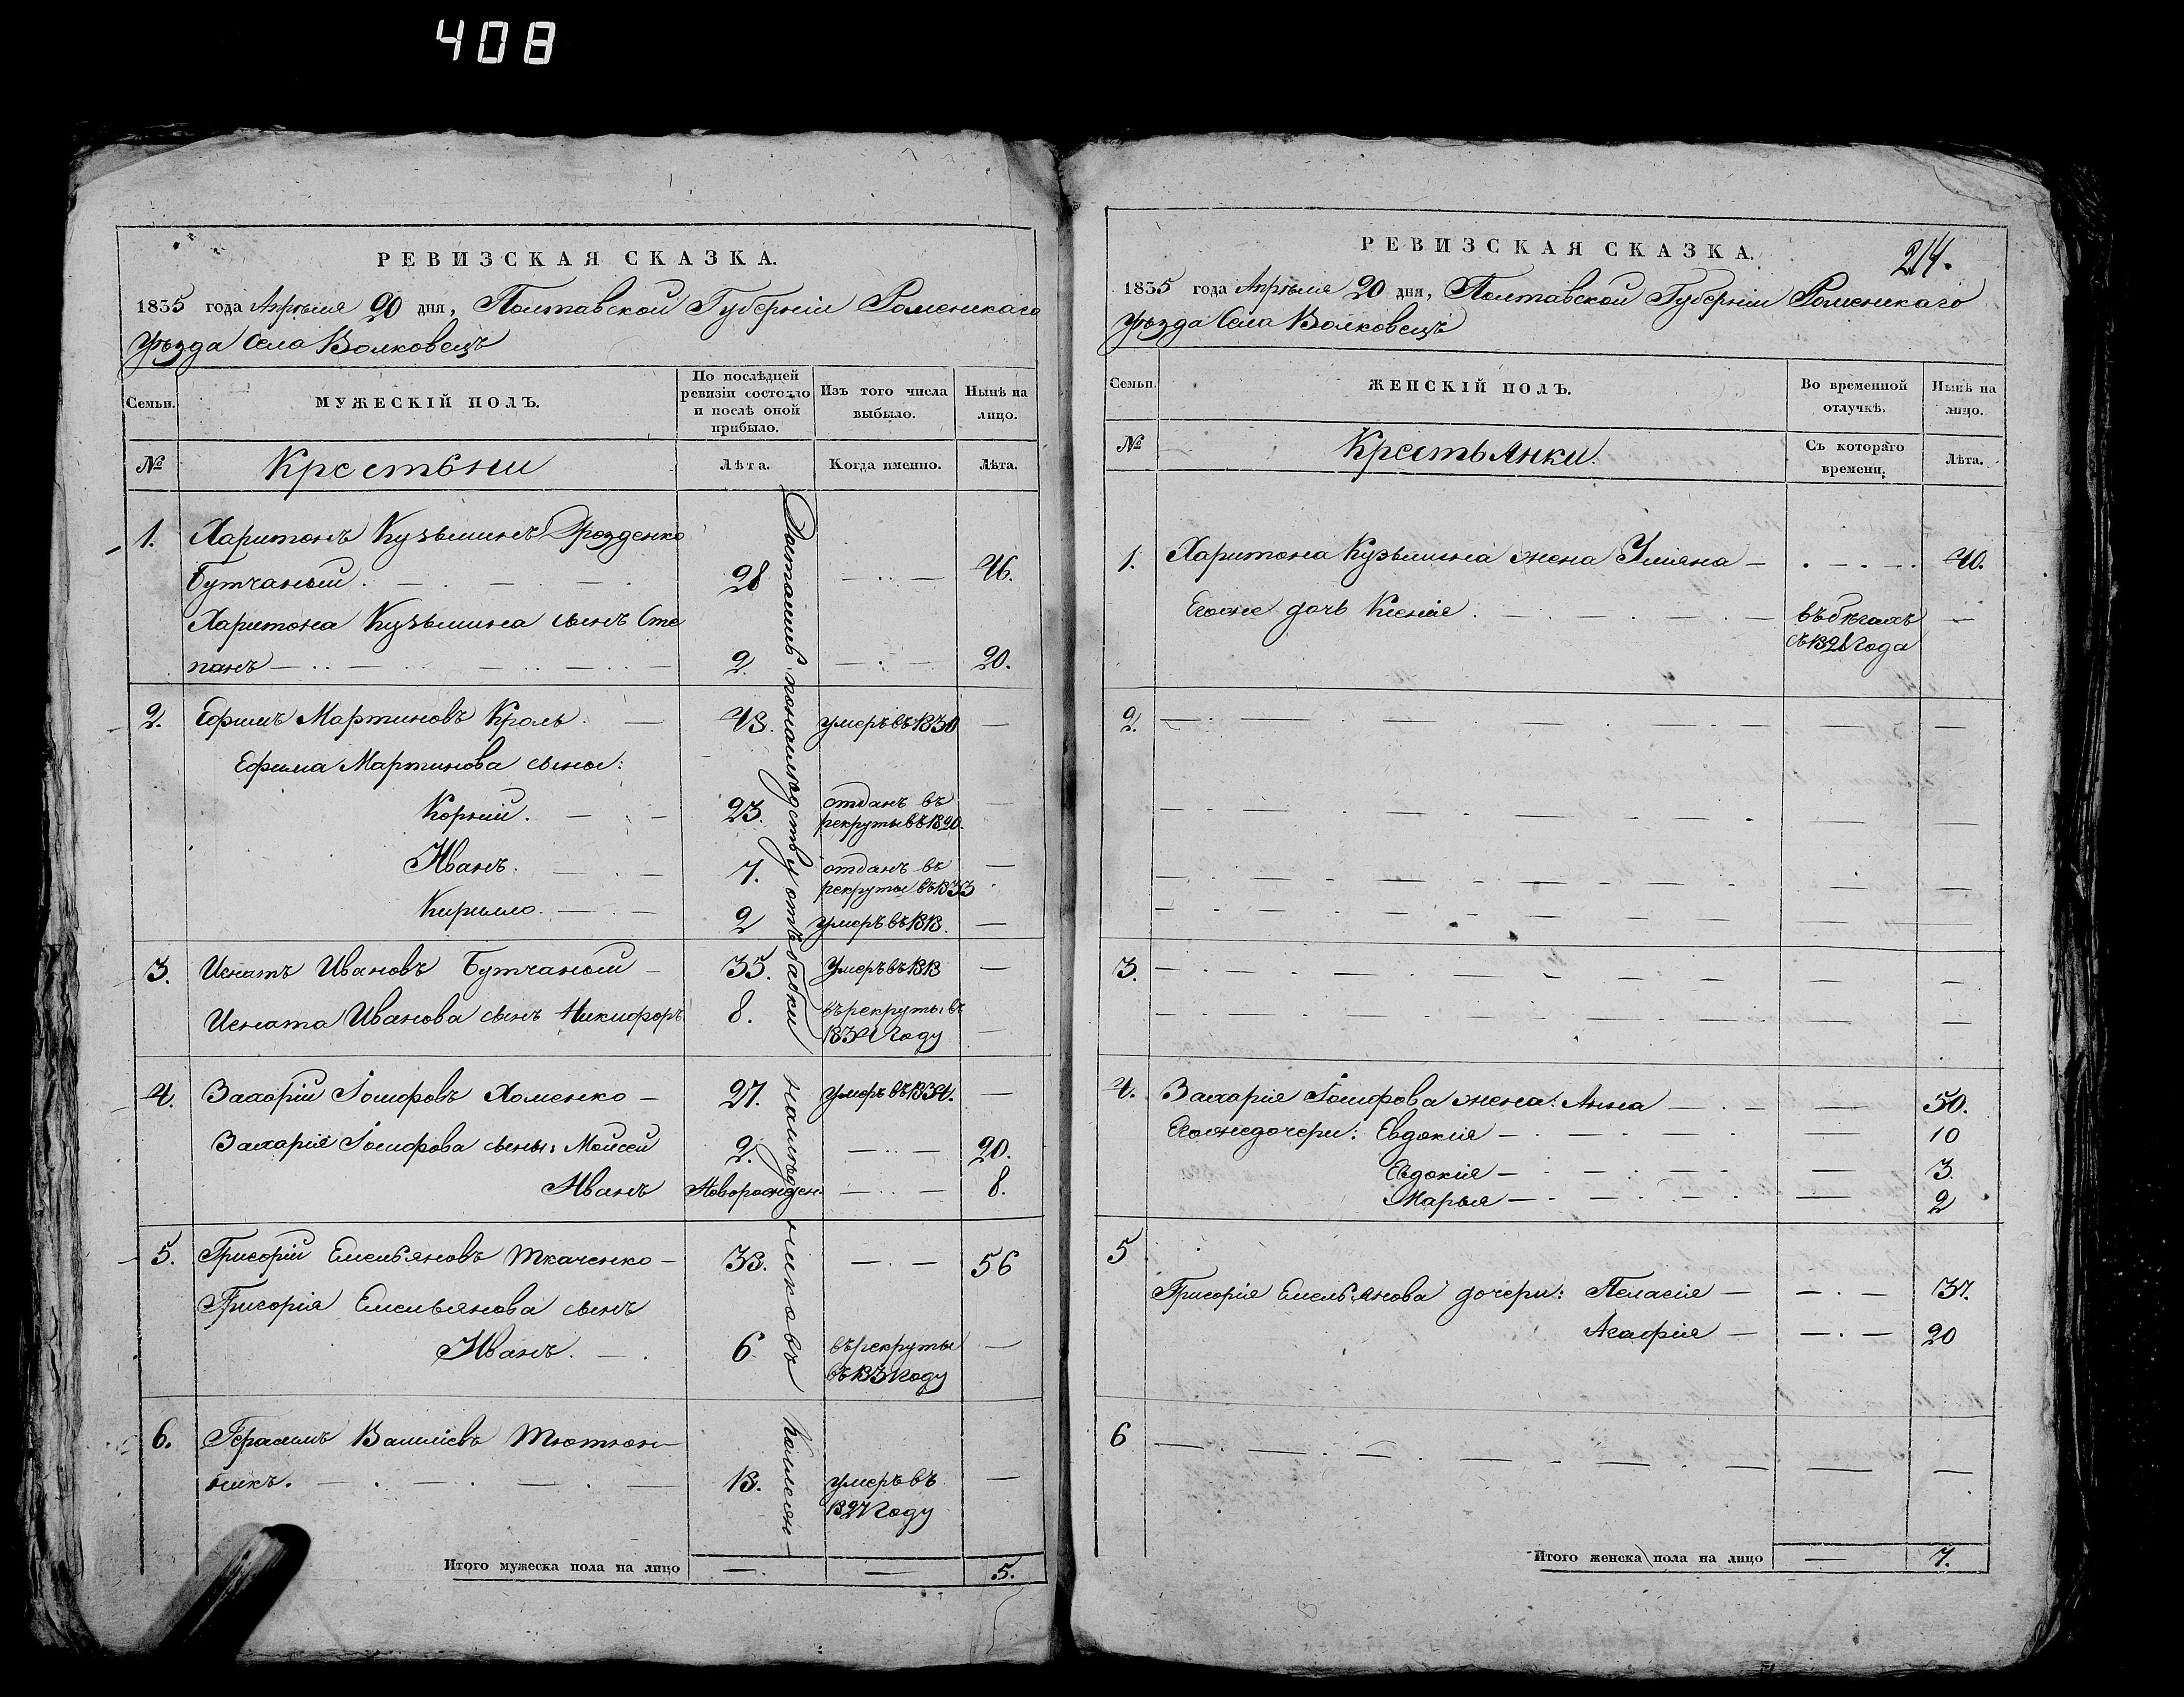 408
РЕВИЗСКАЯ СКАЗКА.
1835 года Апрѣля 20 дня, Полтавской Губерніи Роменскаго
уѣзда Села Волковецъ
Семьи.
МУЖЕСКІЙ ПОЛЪ.
По послѣдней
ревизіи состояло
и послѣ оной
прибыло.
Изъ того числа
выбыло.
Нынѣ на
лицо.
№
Крестьяни
Лѣта.
Когда именно.
Лѣта.
1. Харитонъ Кузьминъ Дрозденко
Бутчаный. 28 46.
Харитона Кузьмина сынъ Сте
панъ 2. 20.
2. Ефимъ Мартиновъ Кроль. 48. умеръ въ 1830
Ефима Мартинова сыны:
Корній. 23. отданъ въ
рекруты въ 1820.
Иванъ. 7. отданъ въ
рекруты въ 1833
Кирилло. 2 умеръ въ 1818.
3. Игнатъ Ивановъ Бутчаный 35. умеръ въ 1818
Игната Иванова сынъ Никифоръ 8. въ рекруты въ
Году
4. Захарій Іосифовъ Хоменко 27. умеръ въ 1834.
Захарія Іосифова сыны: Мойсей 2. 20.
Иванъ Новорожден. 8.
5. Григорій Емельяновъ Ткаченко 38. 56
Григорія Емельянова сынъ
Иванъ. 6 въ рекруты
въ 1831 году
6. Герасимъ Василіевъ Тютюн
никъ. 18. умеръ въ
1827 Году
Доставшіе по наслѣдству отъ бабки
наслѣдниковъ
Итого мужеска пола на лицо 5.
РЕВИЗСКАЯ СКАЗКА.
214.
1835 года Апрѣля 20 дня, Полтавской Губерніи Роменскаго
уѣзда Села Волковецъ
Семьи.
ЖЕНСКІЙ ПОЛЪ.
Во временной
отлучкѣ.
Нынѣ на
лицо.
№
Крестьянки.
Съ котораго
времени.
Лѣта.
1. Харитона Кузьмина жена Уляна 40.
Егоже дочь Ксенія. въ бѣгахъ
съ 1828 года
2.
3.
4. Захарія Іосифова жена: Анна 50.
Егоже дочери: Евдокія 10
Евдокія 3.
Марья 2
5
Григорія Емельянова дочери: Пелагія 37.
Агафія 20
6
Итого женска пола на лицо 7.